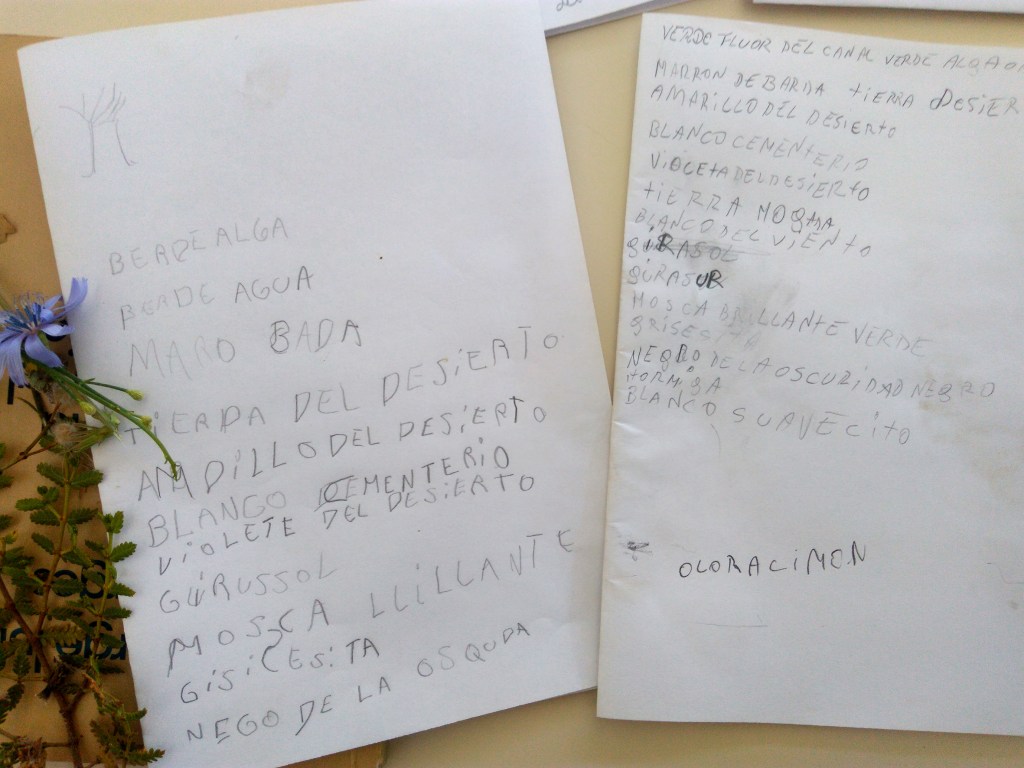 BERDE ALGA
BERDE AGUA
MARO BADA
TIERDA DEL DESIERTO
AMADILLO DEL DESIERTO
BLANGO CEMENTERIO
VIOLETE DEL DESIERTO
GURUSSOL
MOSCA LLILLANTE
GISICESITA
NEGO DE LA OSQUDA
VERDE FLUOR DEL CANAL VERDE ALGA
MARRON DE BARDA TIERRA DESIER
AMARILLO DEL DESIERTO
BLANCO CEMENTERIO
VIOLETA DEL DESIERTO
TIERRA MOGADA
BLANCO DEL VIENTO
GIRASOL
GURASUR
MOSCA BRILLANTE VERDE
NEGRO DE LA OSCURIDAD NEGRO
HORMIGA
BLANCO SUAVECITO
OLORACIMON